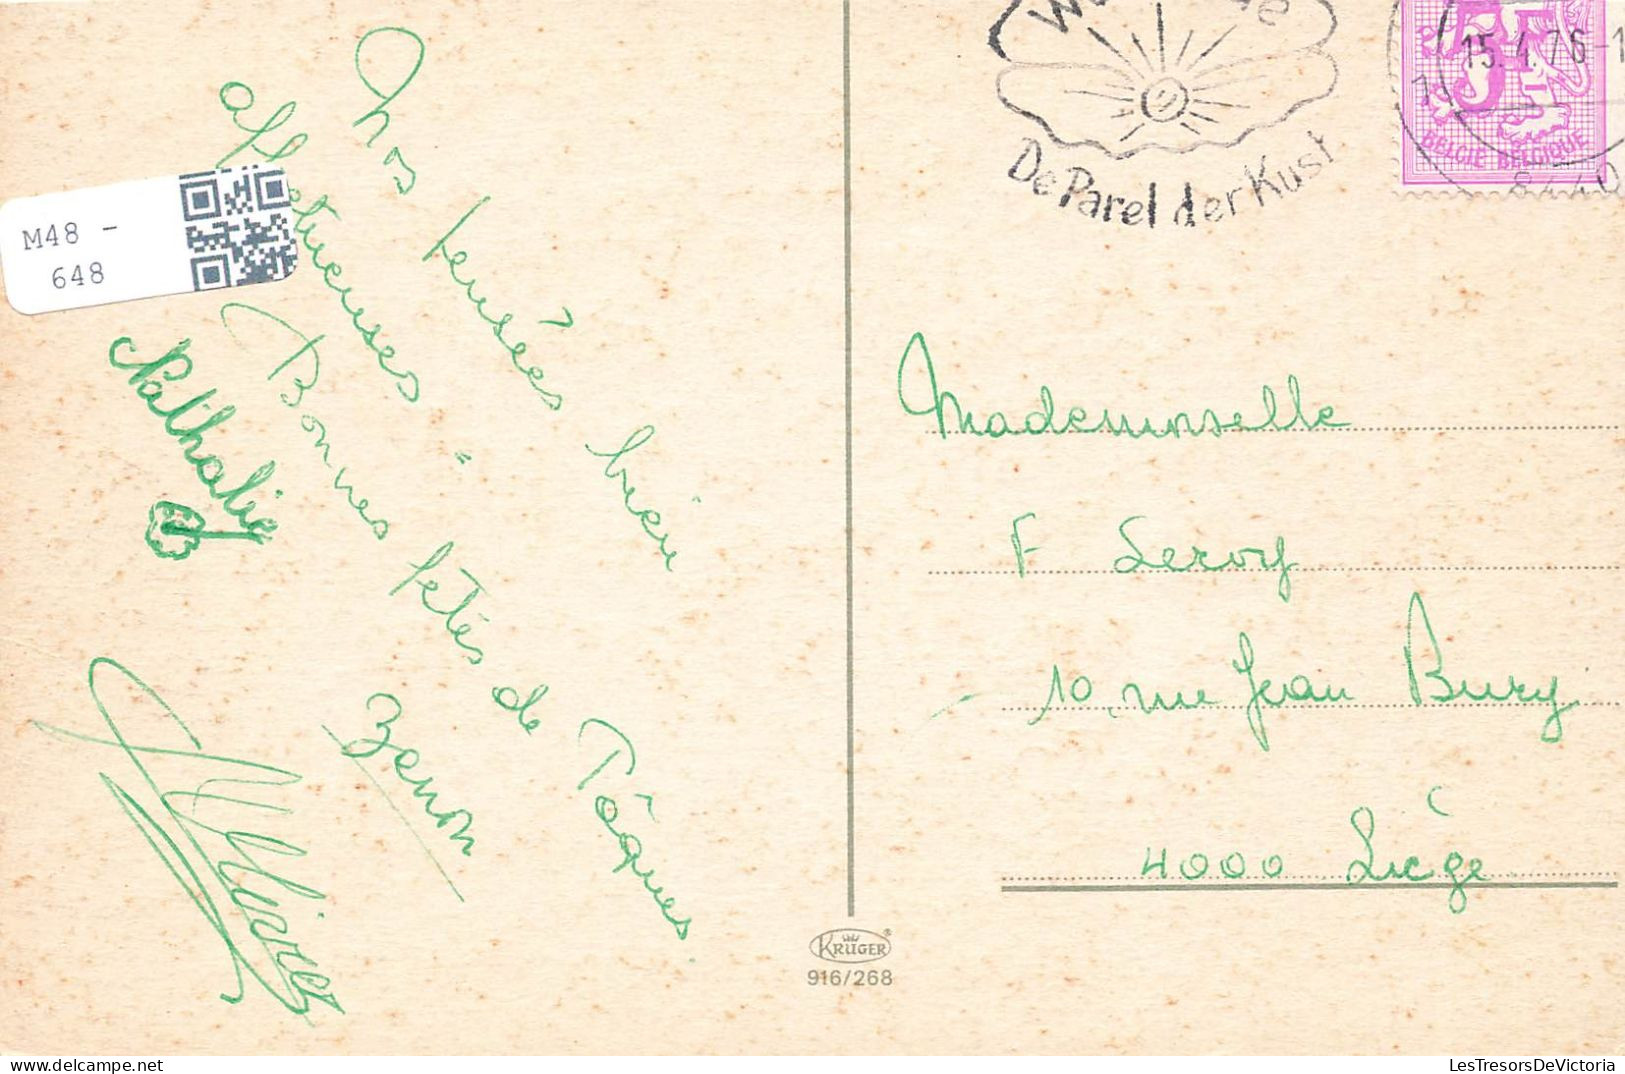 M48 -
648
Nos pensées bien
affectueuses.
Bonnes fêtes de Pâques
Nathalie
Zenon
De Parel der Kust
15.4.76-1
BELGIE BELGIQUE
8440
Mademoiselle
F Leroy
10, rue Jean Bury
4000 Liège
KRÜGER
916/268
LesTresorsDeVictoria